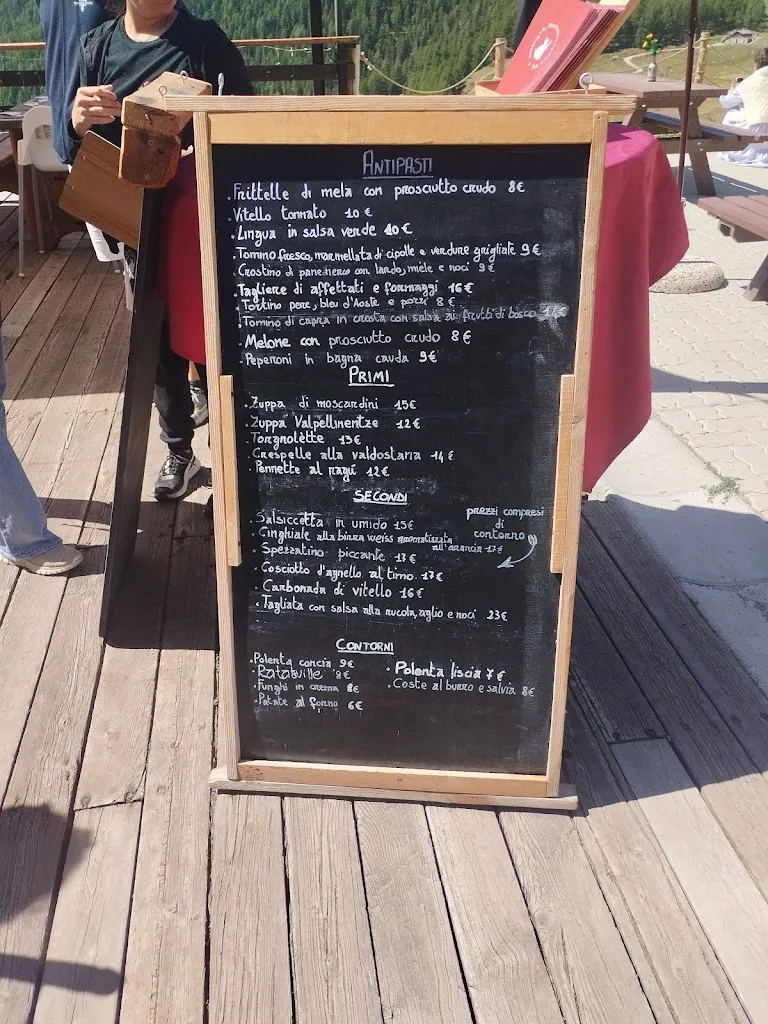 ANTIPASTI
. Frittelle di mela con prosciutto crudo 8€
. Vitello tonnato 10€
. Lingua in salsa verde 10€
. Tomino fresco, marmellata di cipolle e verdure grigliate 9€
. Crostino di pane nero con lardo, miele e noci 9€
. Tagliere di affettati e formaggi 16€
. Tortino pere, bleu d'Aoste e porri 8€
. Tomino di capra in crosta con salsa ai frutti di bosco
. Melone con prosciutto crudo 8€
. Peperoni in bagna cauda 9€
PRIMI
. Zuppa di moscardini 15€
. Zuppa Valpellinentze 12€
. Torgnolette 13€
. Crespelle alla valdostana 14€
. Pennette al ragù 12€
SECONDI
. Salsiccetta in umido 15€
. Cinghiale alla birra weiss aromatizzata all'arancia 17€
. Spezzatino piccante 17€
. Cosciotto d'agnello al timo 17€
. Carbonada di vitello 16€
. Tagliata con salsa alla rucola, aglio e noci 23€
prezzi compresi
di
contorno
CONTORNI
. Polenta concia 9€
. Ratatuille 8€
. Funghi in crema 8€
. Patate al forno 6€
. Polenta liscia 7€
. Coste al burro e salvia 8€